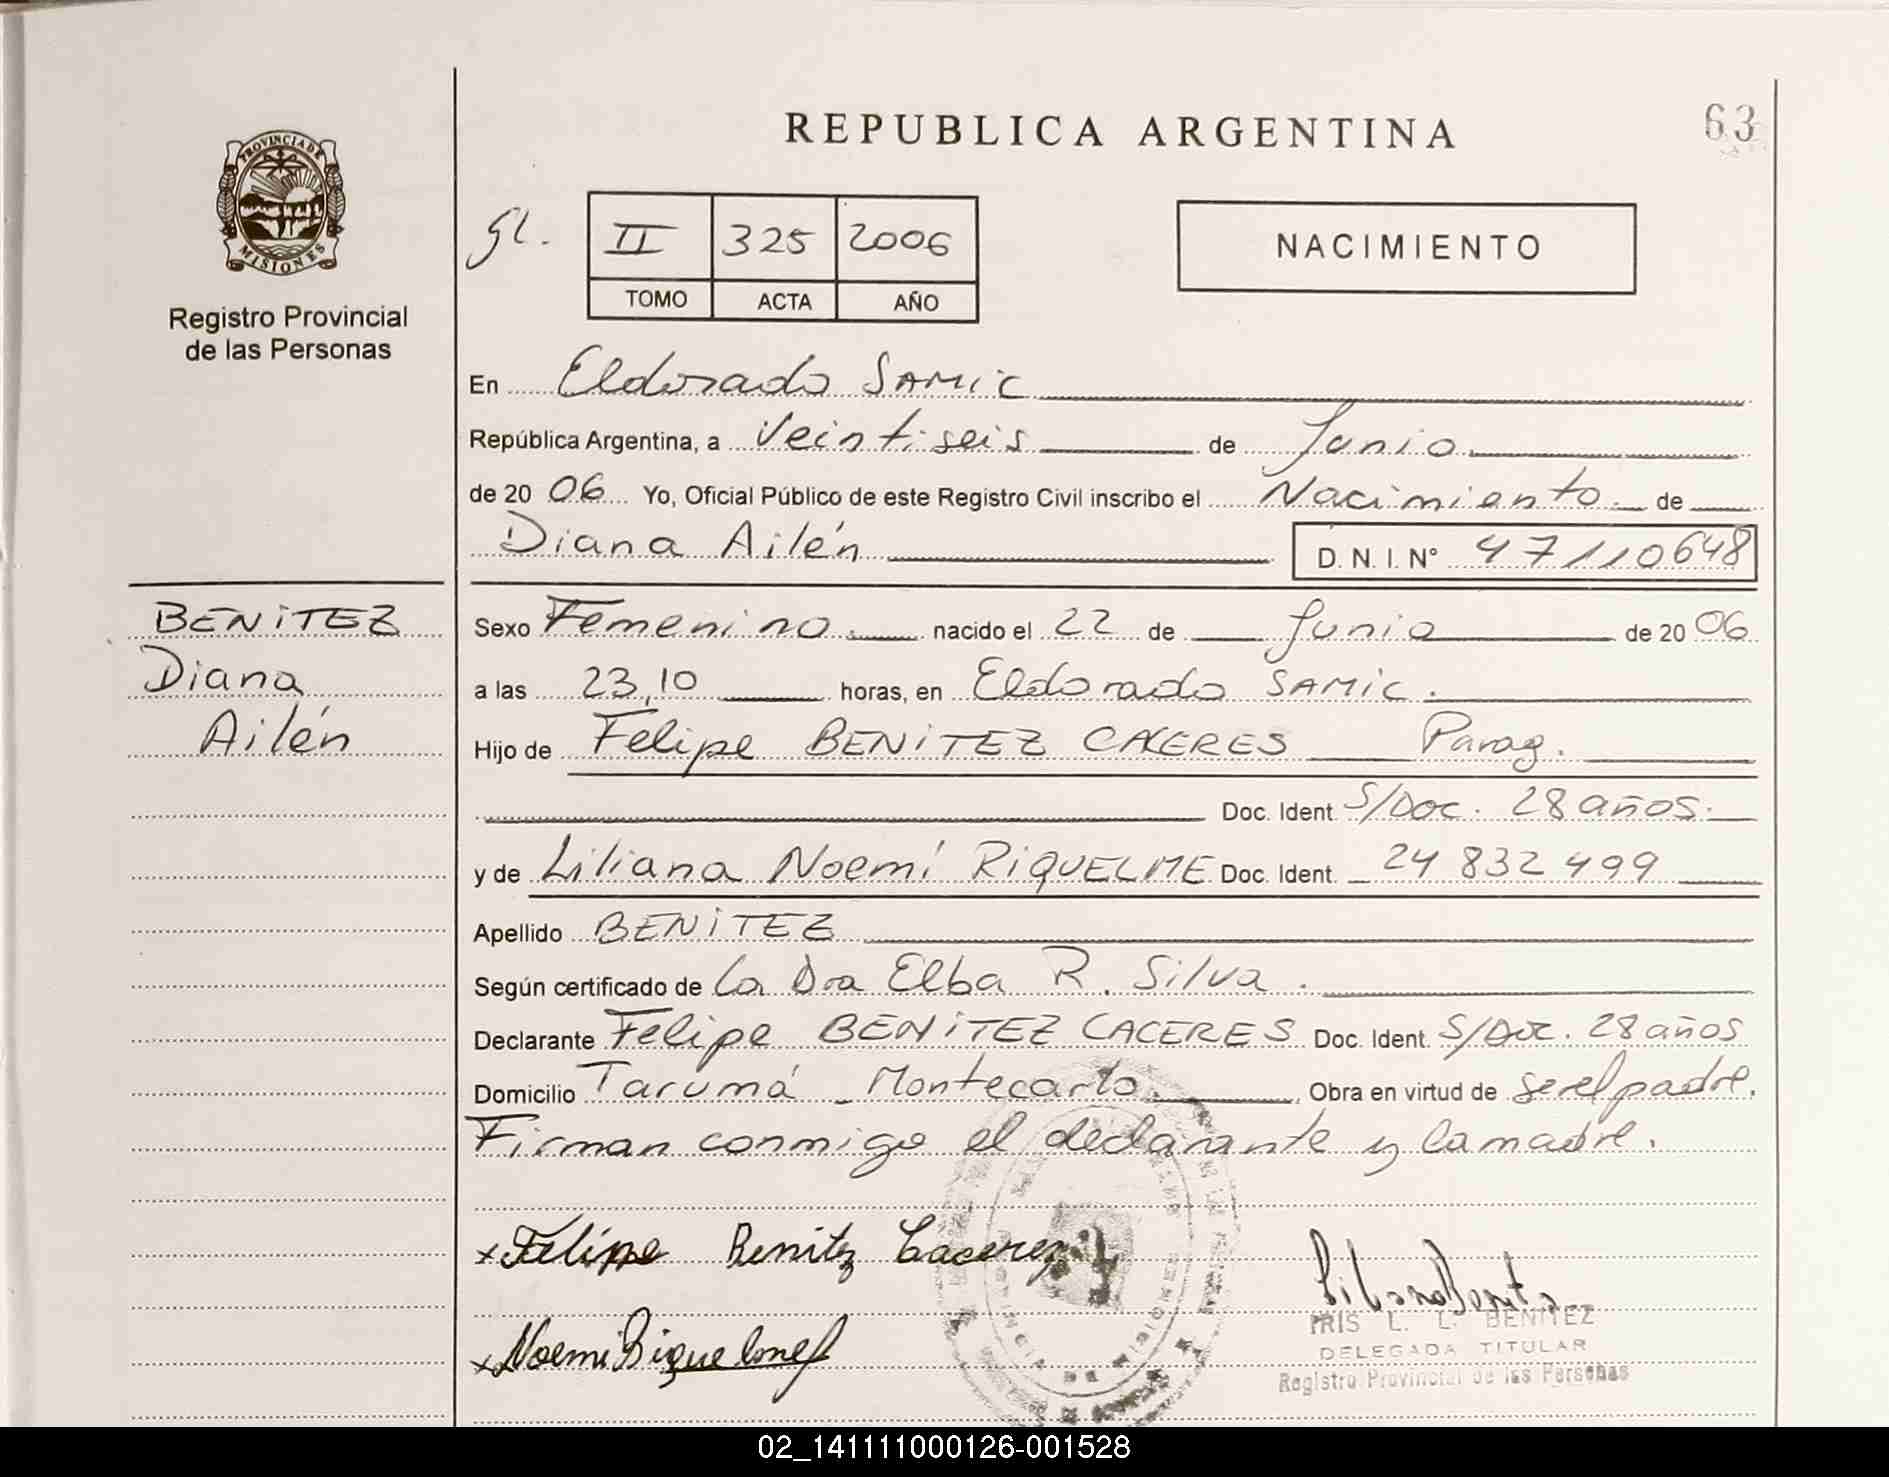 REPUBLICA ARGENTINA
63
PROVINCIA DE
MISIONES
Registro Provincial
de las Personas
II 325 2006
TOMO ACTA AÑO
NACIMIENTO
En Eldorado SAMIC
República Argentina, a Veintiseis de Junio
de 20 06 Yo, Oficial Público de este Registro Civil inscribo el Nacimiento de
Diana Ailén D. N. I. N° 47110648
BENITEZ
Diana
Ailén
Sexo Femenino nacido el 22 de Junio de 20 06
a las 23,10 horas, en Eldorado SAMIC.
Hijo de Felipe BENITEZ CACERES Parag.
Doc. Ident. S/Doc. 28 años.
y de Liliana Noemí RIQUELME Doc. Ident. 24 832 499
Apellido BENITEZ
Según certificado de La Dra Elba R. Silva.
Declarante Felipe BENITEZ CACERES Doc. Ident. S/Doc. 28 años
Domicilio Tarumá - Montecarlo. Obra en virtud de ser el padre.
Firman conmigo el declarante y la madre.
x Felipe Benitez Cacerez
x Noemi Riquelme
IRIS L. L. BENITEZ
DELEGADA TITULAR
Registro Provincial de las Personas
02_141111000126-001528